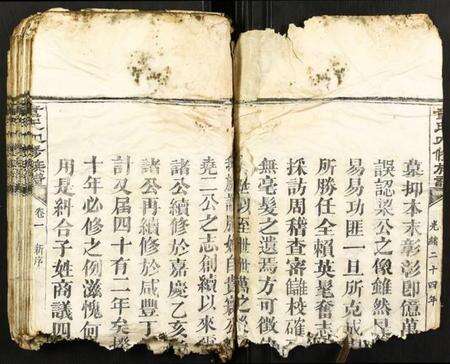 墓抑本末彰彰即億萬
誤認梁公之像雖然
易易功匪一旦所克
所勝任全賴英髦奮志
採訪周稽查審讎校確
無毫髮之遺焉方可徵
以至世世萬之公
堯二公之志創續以來
諸公續修於嘉慶乙亥
諸公再續修於咸豐丁
計又屆四十有二年矣
十年必修之例滋愧何
用是糾合子姓商議四
光緒二十四年
卷一 新序